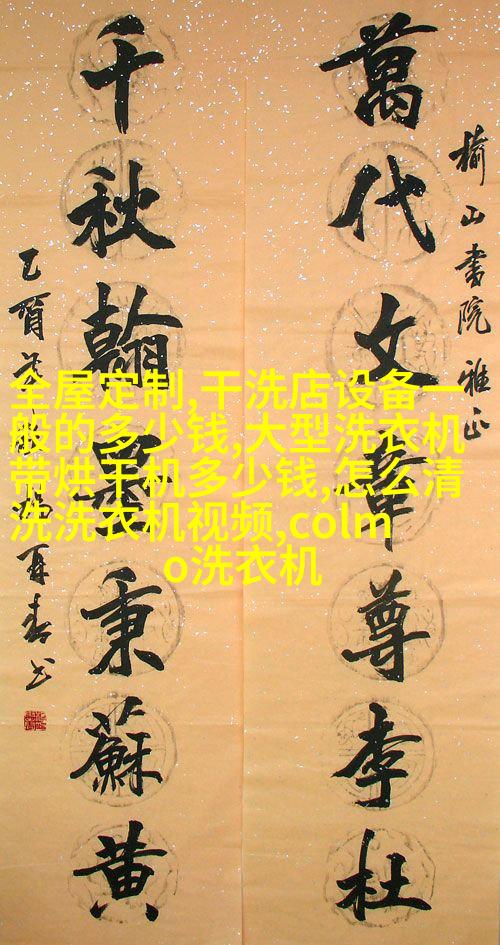 榆山書院雅正
萬代文章尊李杜
千秋翰墨秉蘇黄
乙酉
再春书
全屋定制,干洗店设备一
般的多少钱,大型洗衣机
带烘干机多少钱,怎么清
洗洗衣机视频,colm
o洗衣机